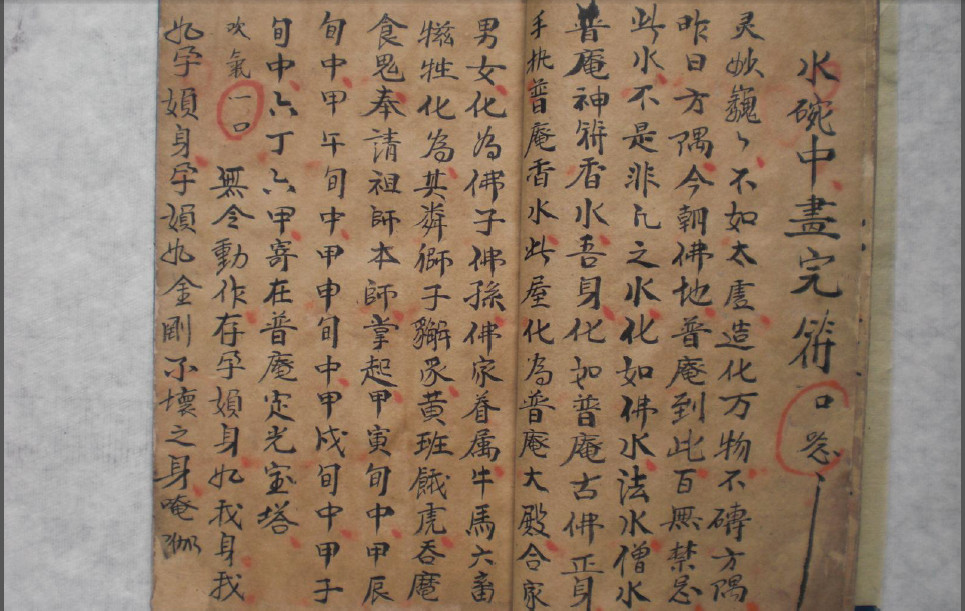 水碗中畫完符口念
灵妙巍々不如太虗造化万物不磚方隅
昨日方隅今朝佛地普庵到此百無禁忌
此水不是非凢之水化如佛水法水僧水
普庵神符香水吾身化如普庵古佛正身
手執普庵香水此屋化為普庵大殿合家
男女化為佛子佛孫佛家眷属牛馬六畜
犧牲化為其粦獅子獬豸黄班餓虎吞魔
食鬼奉請祖師本師掌起甲寅旬中甲辰
旬中甲午旬中甲申旬中甲戍旬中甲子
旬中六丁六甲寄在普庵定光宝塔
吹氣一口 無令動作存孕媍身如我身我
如孕媍身孕媍如金剛不壞之身唵